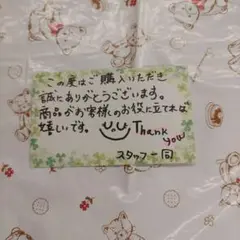 この度はご購入いただき
誠にありがとうございます。
商品がお客様のお役に立てれば
嬉しいです。 Thank you
スタッフ一同